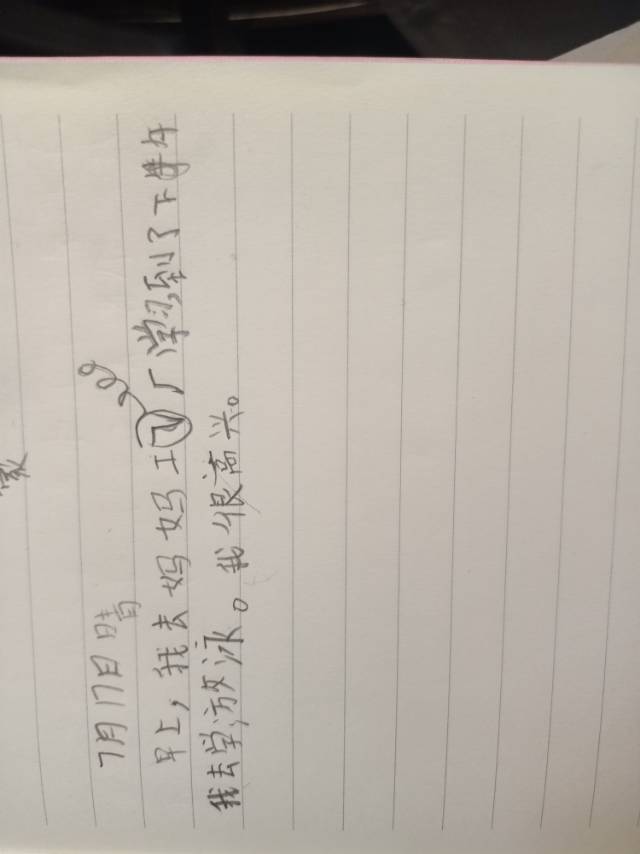 7月17日
早上，我去妈妈工厂学习到了下午
我去学游泳。我很高兴。